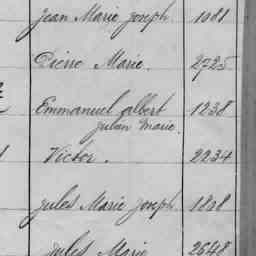 Jean Marie Joseph 1081
Pierre Marie. 2725
Emmanuel albert 1238
Julien Marie.
Victor. 2234
Jules Marie Joseph 1838
Jules Marie 2648